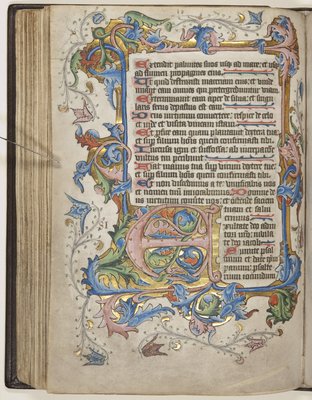 Extendit palmites suos usq; ad mare: et usq;
ad flumen propagines eius.
Ut quid destruxisti maceriam eius: et vinde
miant eam omnes qui pretergrediuntur viam.
Exterminavit eam aper de silva: et singu
laris ferus depastus est eam.
Deus virtutum convertere: respice de celo
et vide et visita vineam istam.
Et perfice eam quam plantavit dextera tua:
et sup filium hōis quem confirmasti tibi.
Incensa igni et suffossa: ab increpatiōe
vultus tui peribunt.
Fiat manus tua sup virum dextere tue:
et sup filium hōis quem confirmasti tibi.
Et non discedimus a te: vivificabis nos
et nomen tuū invocabimus. Domine de
us virtutum converte nos: et ostende faciem
tuam et salvi
erimus.
Exultate deo adiu
tori nrō: iubila
te deo iacob.
Sumite psal
mum et date tym
panum: psalte
rium iocundum